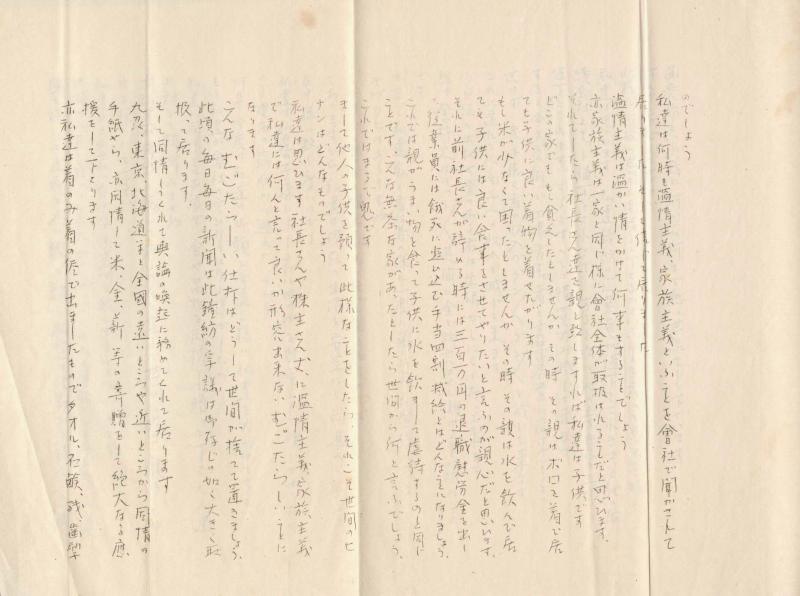 のでしょう
私達は何時も溫情主義、家族主義といふことを會社で聞かされて
居りましたそれを信じて居りました
溫情主義は溫かい情をかけて何事もすることでしょう
亦家族主義は一家と同じ様に會社全体が取扱はれることだと思ひます、
それでしたら社長さん達を親と致しますれば私達は子供です
どこの家でももし貧乏したとしませんか その時 その親はボロを着て居
ても子供に良い着物を着せたがります
もし米が少なくて困ったとしませんか その時 その親は水を飲んで居
ても子供には良い食事をさせてやりたいと言ふのが親心だと思ひます、
それに前社長さんが辞める時には三百万円の退職慰労金を出し
従業員には餓死に追ひ込む手当四割減給とはどんなことになりましょう、
これでは親がうまい物を食って子供に水を飲まして虐待するのと同じ
ことです、こんな無茶な家があったとしたら世間から何と言ふでしょう、
これではまるで鬼です
まして他人の子供を預って此様なことをしたら、それこそ世間のセ
ナンはどんなものでしょう
私達は思ひます 社長さんや株主さん丈に溫情主義、家族主義
で私達には何んと言って良いか形容出来ない むごたらしいことに
なります
こんな むごたらしい仕打はどうして世間が捨てて置きましょう、
此頃の毎日毎日の新聞は此鐘紡の爭議は御存じの如く大きく取
扱って居ります、
そして同情してくれて輿論の喚起に務めてくれて居ります
九州、東京、北海道等と全國の遠いところや近いところから同情の
手紙やら、亦同情して米、金、薪 等の寄贈をして絶大なる應
援をして下さります
亦私達は着のみ着の侭で出ましたものでタオル、石鹸、 歯磨